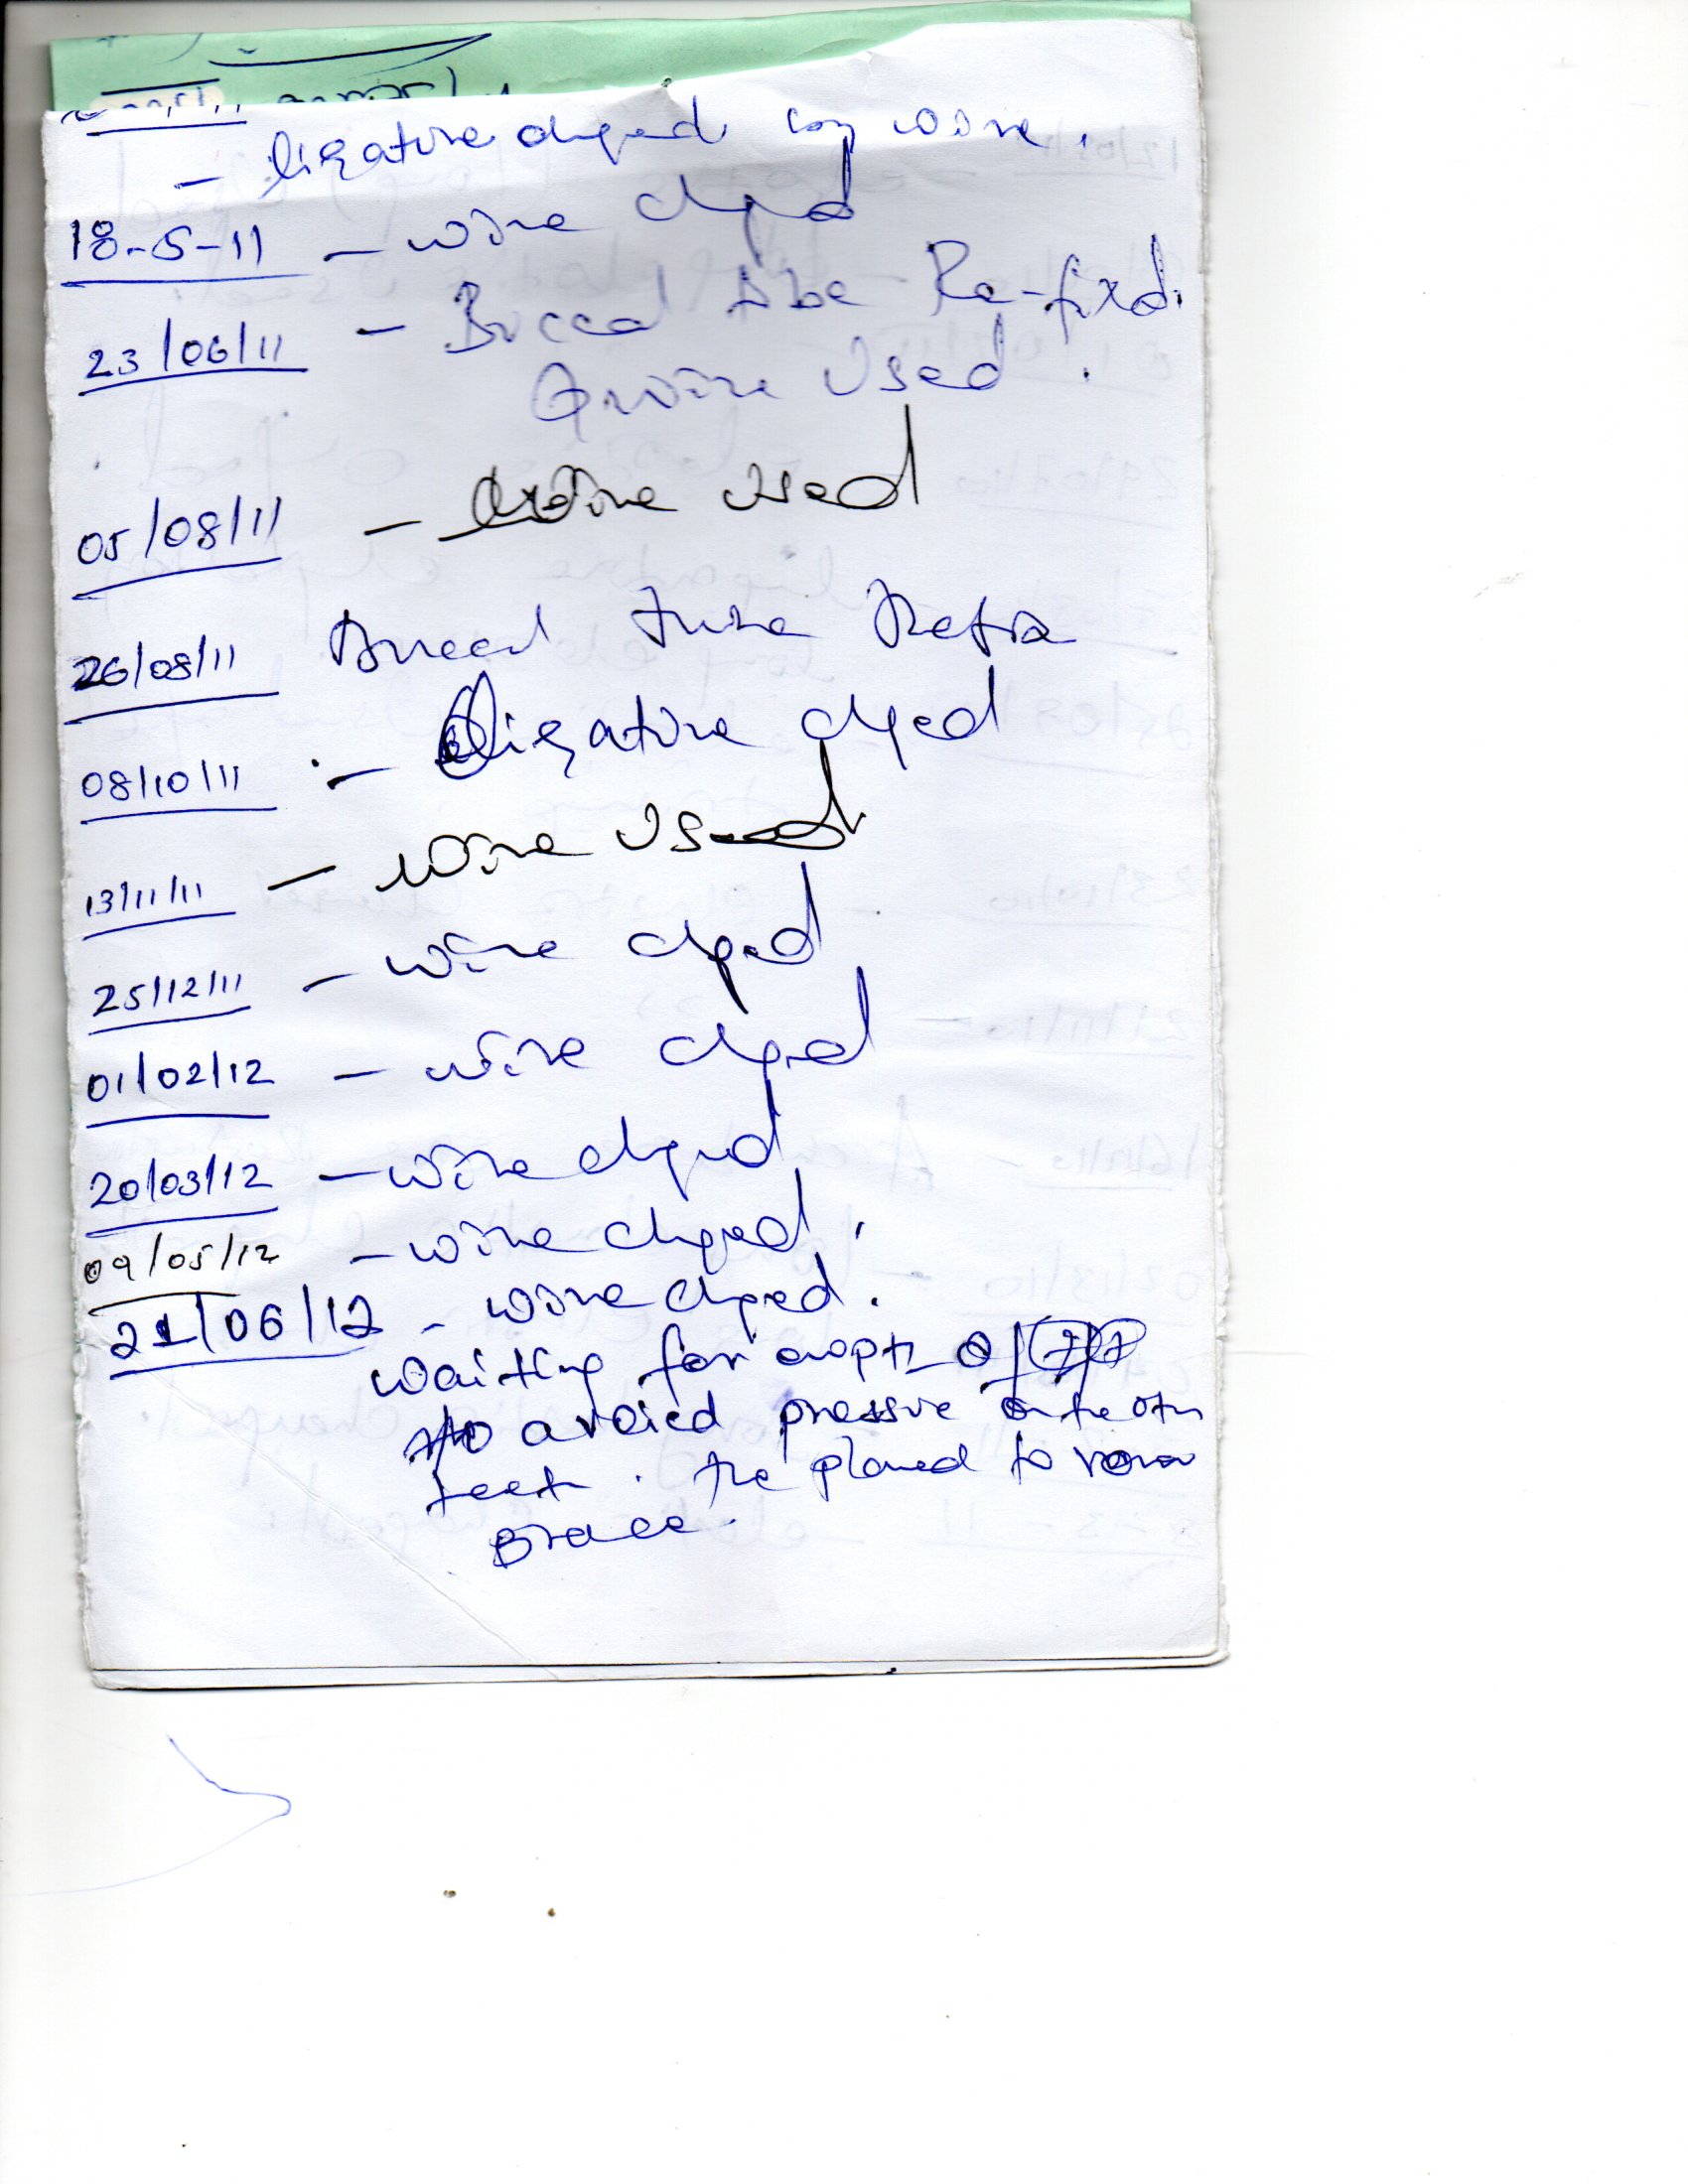 - ligature chged wire.
18-5-11 - wire chged
23/06/11 - Buccal tube Re-fixd.
wire Used.
05/08/11 - wire used
26/08/11 Buccal tube Refix
08/10/11 - ligature chged
13/11/11 - wire Used
25/12/11 - wire chged
01/02/12 - wire chged
20/03/12 - wire chged
09/05/12 - wire chged.
21/06/12 - wire chged.
waiting for of
to avoied pressure on the oth
teeth. the planed to
Brace.